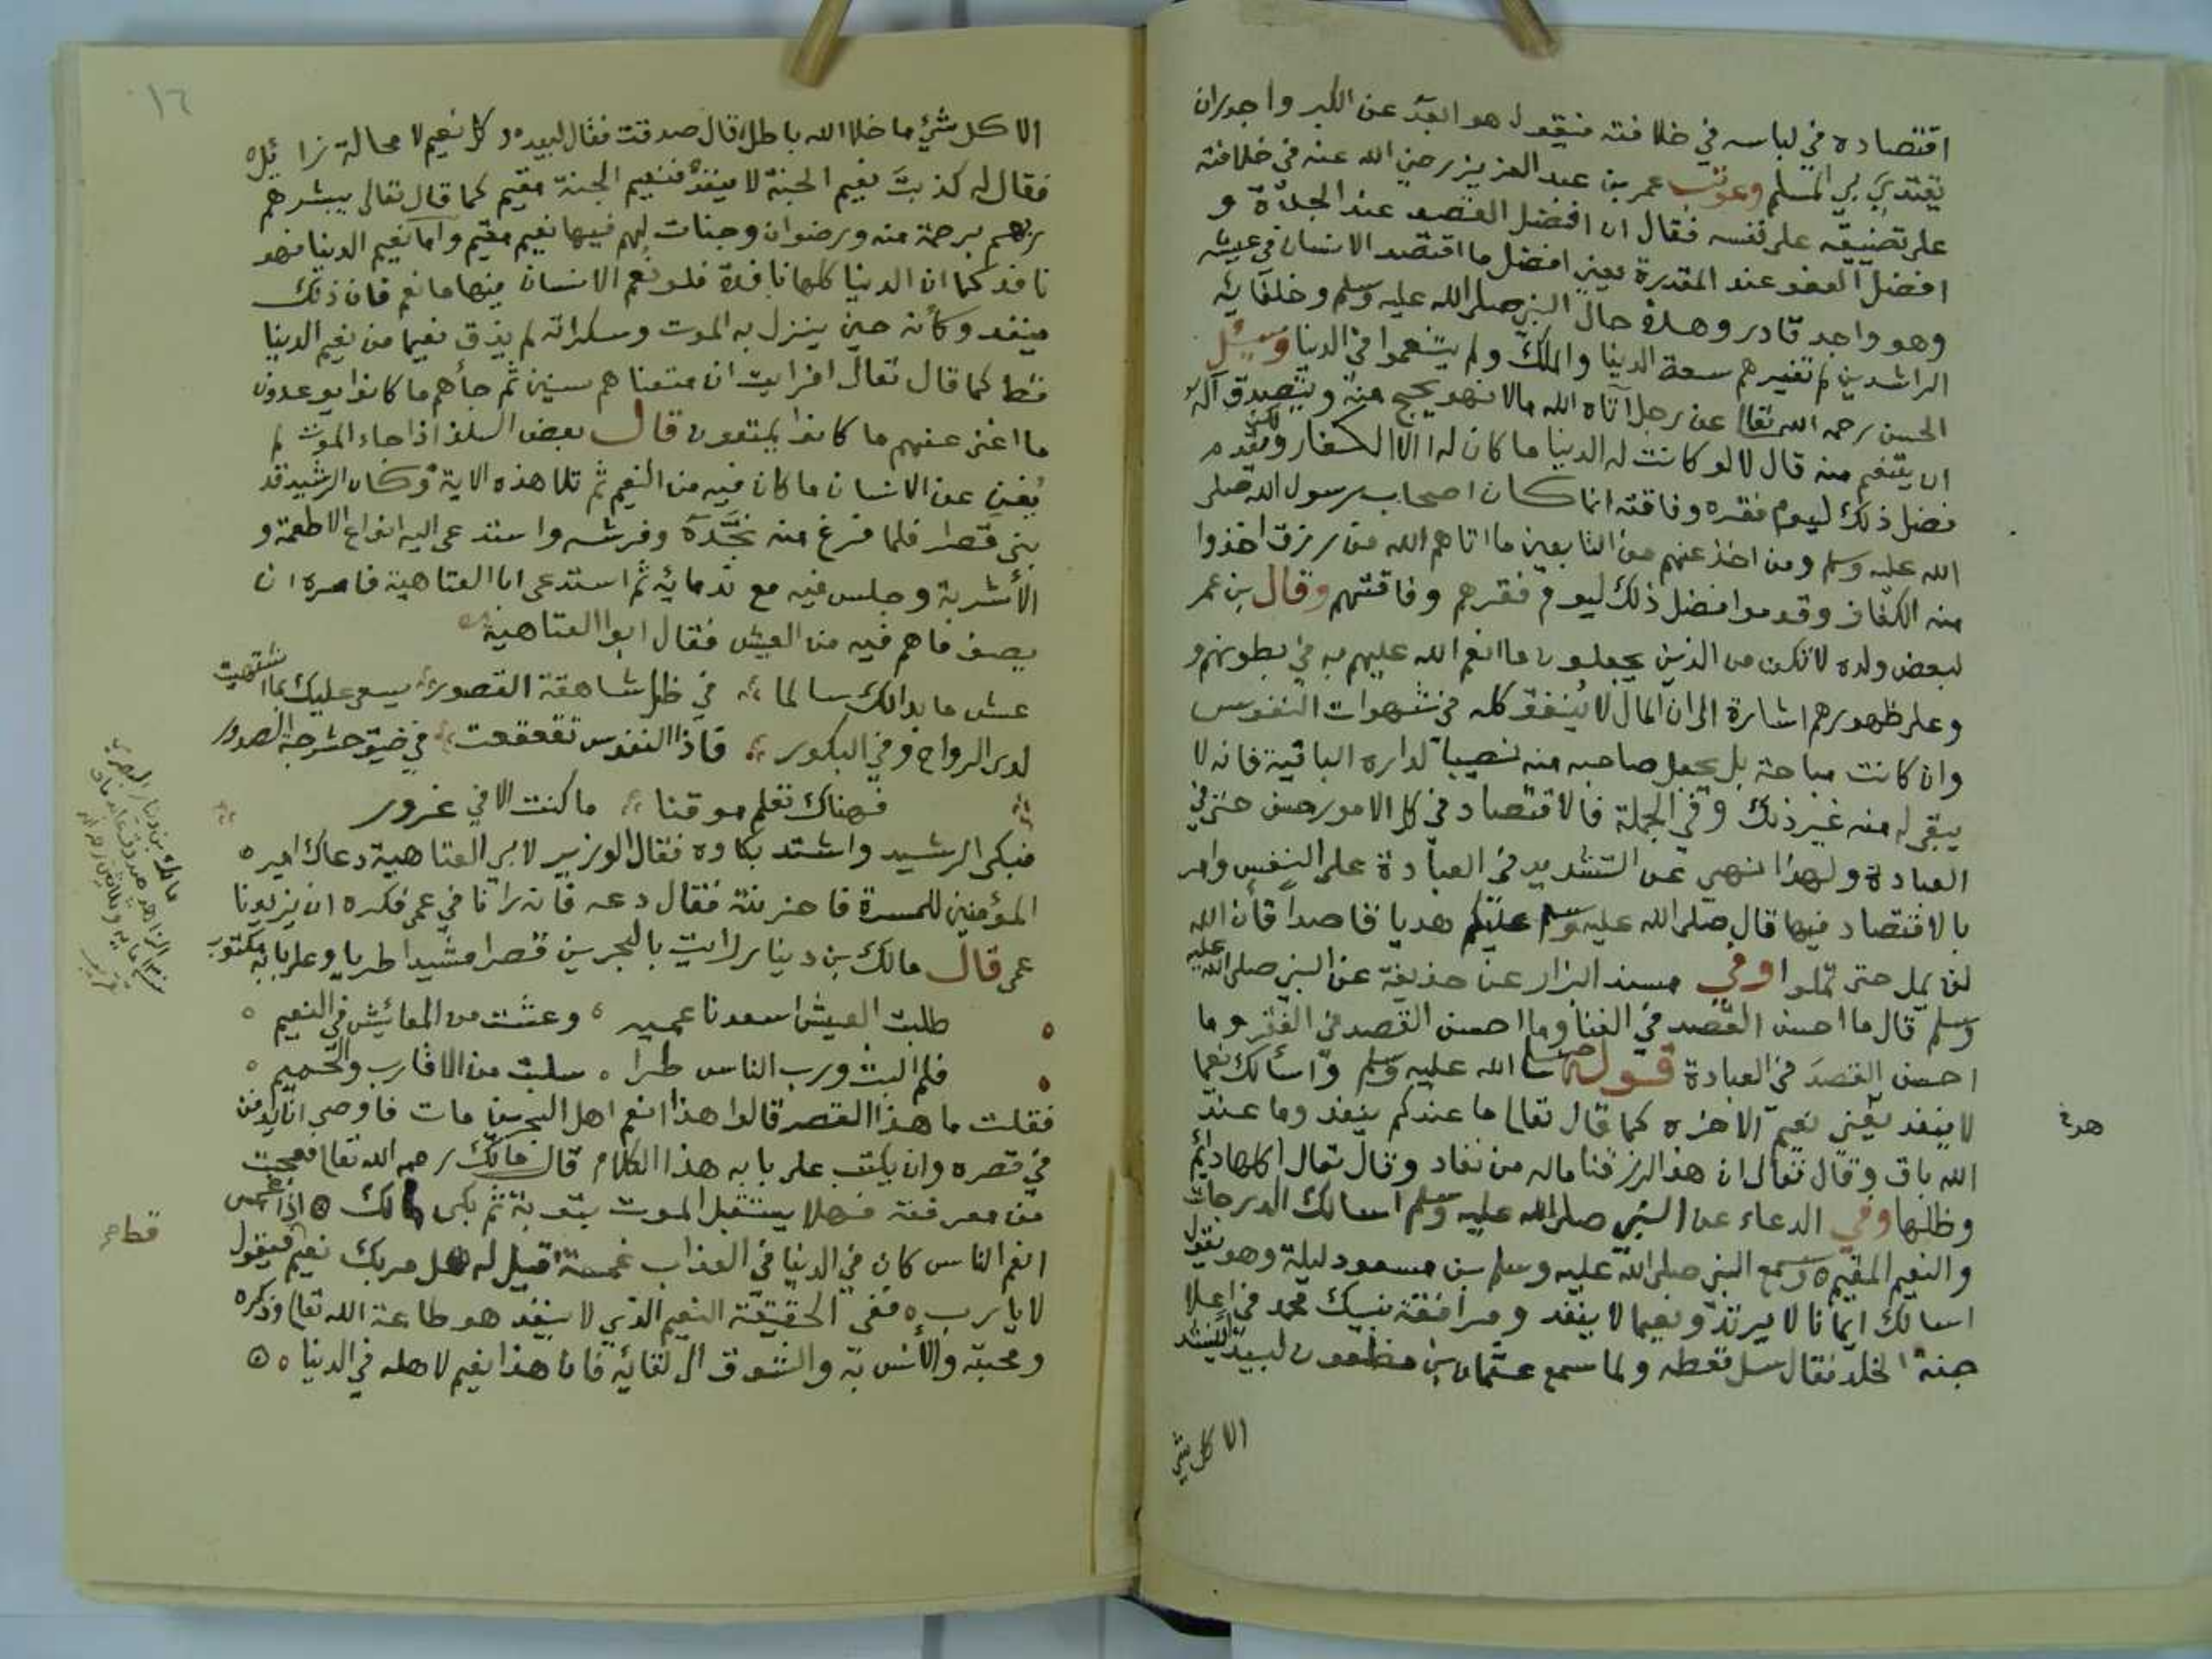 اقتصاده في لباسه في خلافته فيقول هو ابعد عن الكبر واجدر ان
يقتدي بي المسلم وعوتب عمر بن عبد العزيز رضي الله عنه في خلافته
على تضييقه على نفسه فقال ان افضل القصد عند الجدة و
افضل العفو عند المقدرة يعني افضل ما اقتصد الانسان في عيشه
وهو واجد قادر وهذه حال النبي صلى الله عليه وسلم وخلفائه
الراشدين لم تغيرهم سعة الدنيا والملك ولم يتنعموا في الدنيا وسئل
الحسن رحمه الله تعالى عن رجل آتاه الله مالا فهو يحج منه ويتصدق آله
ان يتنعم منه قال لا لو كانت له الدنيا ما كان له الا الكفاف ويقدم
فضل ذلك ليوم فقره وفاقته انما كان اصحاب رسول الله صلى
الله عليه وسلم ومن اخذ عنهم من التابعين ما اتاهم الله من رزق اخذوا
منه الكفاف وقدموا فضل ذلك ليوم فقرهم وفاقتهم وقال بن عمر
لبعض ولده لا تكن من الذين يجعلون ما انعم الله عليهم به في بطونهم و
وعلى ظهورهم اشارة الى ان المال لا يُنفق كله في شهوات النفوس
وان كانت مباحة بل يجعل صاحبه منه نصيبا لداره الباقية فانه لا
يبقى له منه غير ذلك وفي الجملة فالاقتصاد في كل الامور حسن حتى في
العبادة ولهذا نهي عن التشديد في العبادة على النفس وامر
بالاقتصاد فيها قال صلى الله عليه وسلم عليكم هديا قاصدا فان الله
لن يمل حتى تملوا وفي مسند البزار عن حذيفة عن النبي صلى الله عليه
وسلم قال ما احسن القصد في الغنا وما احسن القصد في الفقر وما
احسن القصدَ في العبادة قوله صلى الله عليه وسلم واسألك نعيما
لا ينفد يعني نعيم الاخره كما قال تعالى ما عندكم ينفد وما عند
الله باق وقال تعالى ان هذا لرزقنا ماله من نفاد وقال تعالى اكلها دائم
وظلها وفي الدعاء عن النبي صلى الله عليه وسلم اسالك الدرجات
والنعيم المقيم ه وسمع النبي صلى الله عليه وسلم بن مسعود ليلة وهو يقول
اسالك ايمانا لا يرتد ونعيما لا ينفد ومرافقة نبيك محمد في اعلا
جنة الخلد فقال سل تعطه ولما سمع عثمان بن مظعون لبيد ينشد
الا كل شي
١٦
الا كل شئ ما خلا الله باطل قال صدقت فقال لبيد ه وكل نعيم لا محالة زائل ه
فقال له كذبتَ نعيم الجنة لا ينفد فنعيم الجنة مقيم كما قال تعالى يبشرهم
ربهم برحمة منه ورضوان وجنات لهم فيها نعيم مقيم واما نعيم الدنيا فهو
نافد كما ان الدنيا كلها نافدة فلو نعم الانسان فيها ما نعم فان ذلك
ينفد وكأنه حين ينزل به الموت وسكراته لم يذق نعيما من نعيم الدنيا
قط كما قال تعالى افرايت ان متعناهم سنين ثم جأهم ما كانوا يوعدون
ما اغنى عنهم ما كانوا يمتعون قال بعض السلف اذا جاء الموت لم
يُغنِ عن الانسان ما كان فيه من النعيم ثم تلا هذه الاية وكان الرشيد قد
بنى قصرا فلما فرغ منه نَجَّدَه وفرشه واستدعى اليه انواع الاطعمة و
الأشربة وجلس فيه مع ندمائه ثم استدعى ابا العتاهية فامره ان
يصف ما هم فيه من العيش فقال ابوا العتاهية
عش ما بدالك سالما في ظل شاهقة القصور يسعى عليك بما اشتهيت
لدى الرواح وفي البكور فاذا النفوس تقعقعت في ضيق حشرجة الصدور
فهناك تعلم موقنا ما كنت الا في غرور
فبكى الرشيد واشتد بكاوه فقال الوزير لابي العتاهية دعاك امير ه
المؤمنين للمسرة فاحزنته فقال دعه فانه رانا في عمى فكره ان يزيدنا
عمى قال مالك بن دينار رايت بالبحرين قصرا مشيدا طريا وعلى بابه مكتوب
طلبت العيش اسعدنا عميد وعشت من المعائيش في النعيم ه
فلم البث ورب الناس طرا ه سلبت من الاقارب والحميم ه
فقلت ما هذا القصر قالوا هذا انعم اهل البحرين مات فاوصى ان يدفن
في قصره وان يكتب على بابه هذا الكلام قال مالك رحمه الله تعالى فعجبت
من معرفته فهلا يستقبل الموت بتوبة ثم بكى مالك ه اذا غمس
انعم الناس كان في الدنيا في العذاب غمسة قيل له هل مر بك نعيم فيقول
لا يا رب ه ففي الحقيقة النعيم الذي لا ينفد هو طاعة الله تعالى وذكره
ومحبته والأنس به والشوق الى لقائه فان هذا نعيم لاهله في الدنيا ه
مالك بن دينار البصري
قط